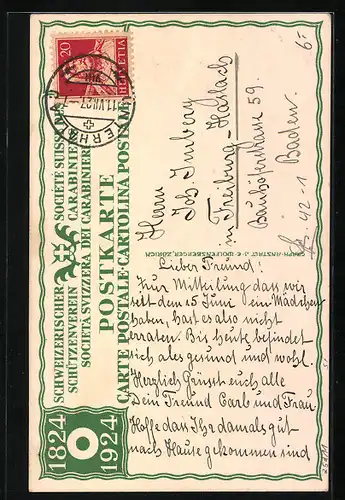 6.-
20
HELVETIA
11.VII.27.-7
SCHWEIZERISCHER
SCHÜTZENVEREIN
SOCIÉTÉ SUISSE
CARABINIE
SOCIETÀ SVIZZERA DEI CARABINIERI
POSTKARTE
CARTE POSTALE-CARTOLINA POSTALE
GRAPH. ANSTALT J. E. WOLFENSBERGER, ZÜRICH
1824
1924
Herrn
Joh. Imberg
in Freiburg-Haslach
59.
Baden.
42-1
Lieber Freund!
Zur Mitteilung das wir
seit dem 15 Juni ein Mädchen
haben, hast es also nicht
erraten. Bis heute befindet
sich ales gesund und wohl.
Herzlich Grüsst euch alle
Dein Freund Carl und Frau
Hoffe das Ihr damals gut
nach Hause gekommen sind